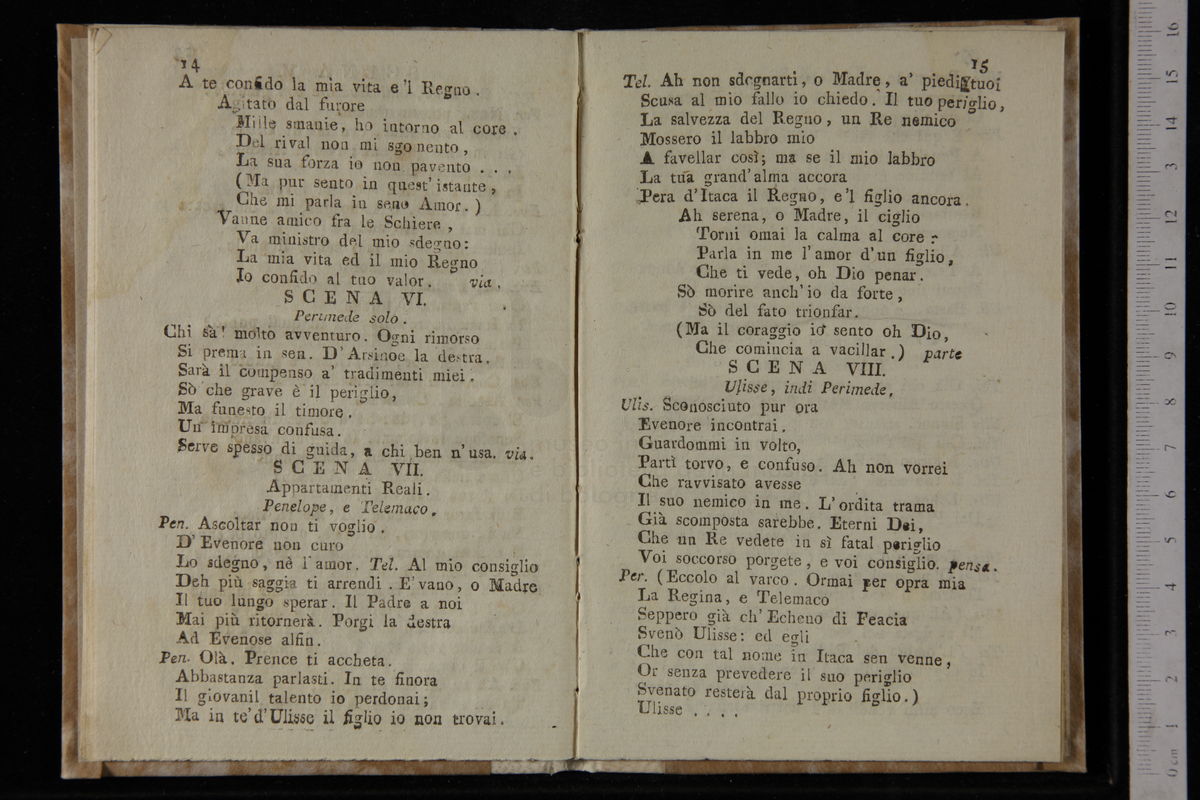 14
A te confido la mia vita e'l Regno.
Agitato dal furore
Mille smanie, ho intorno al core.
Del rival non mi sgomento,
La sua forza io non pavento . . .
(Ma pur sento in quest' istante,
Che mi parla in seno Amor.)
Vanne amico fra le Schiere,
Va ministro del mio sdegno:
La mia vita ed il mio Regno
Io confido al tuo valor. via.
SCENA VI.
Perimede solo.
Chi sà! molto avventuro. Ogni rimorso
Si prema in sen. D'Arsinoe la destra.
Sarà il compenso a' tradimenti miei.
Sò che grave è il periglio,
Ma funesto il timore.
Un impresa confusa.
Serve spesso di guida, a chi ben n'usa. via.
SCENA VII.
Appartamenti Reali.
Penelope, e Telemaco.
Pen. Ascoltar non ti voglio.
D'Evenore non curo
Lo sdegno, nè l'amor. Tel. Al mio consiglio
Deh più saggia ti arrendi. E' vano, o Madre
Il tuo lungo sperar. Il Padre a noi
Mai più ritornerà. Porgi la destra
Ad Evenose alfin.
Pen. Olà. Prence ti accheta.
Abbastanza parlasti. In te finora
Il giovanil talento io perdonai;
Ma in te' d'Ulisse il figlio io non trovai.
15
Tel. Ah non sdegnarti, o Madre, a' piedi tuoi
Scusa al mio fallo io chiedo. Il tuo periglio,
La salvezza del Regno, un Re nemico
Mossero il labbro mio
A favellar così; ma se il mio labbro
La tua grand'alma accora
Pera d'Itaca il Regno, e'l figlio ancora.
Ah serena, o Madre, il ciglio
Torni omai la calma al core:
Parla in me l'amor d'un figlio,
Che ti vede, oh Dio penar.
Sò morire anch'io da forte,
Sò del fato trionfar.
(Ma il coraggio io sento oh Dio,
Che comincia a vacillar.) parte
SCENA VIII.
Ulisse, indi Perimede,
Ulis. Sconosciuto pur ora
Evenore incontrai.
Guardommi in volto,
Partì torvo, e confuso. Ah non vorrei
Che ravvisato avesse
Il suo nemico in me. L'ordita trama
Già scomposta sarebbe. Eterni Dei,
Che un Re vedete in sì fatal periglio
Voi soccorso porgete, e voi consiglio. pensa.
Per. (Eccolo al varco. Ormai per opra mia
La Regina, e Telemaco
Seppero già ch'Echeno di Feacia
Svenò Ulisse: ed egli
Che con tal nome in Itaca sen venne,
Or senza prevedere il suo periglio
Svenato resterà dal proprio figlio.)
Ulisse . . . .
0 cm 1 2 3 4 5 6 7 8 9 10 11 12 13 14 15 16